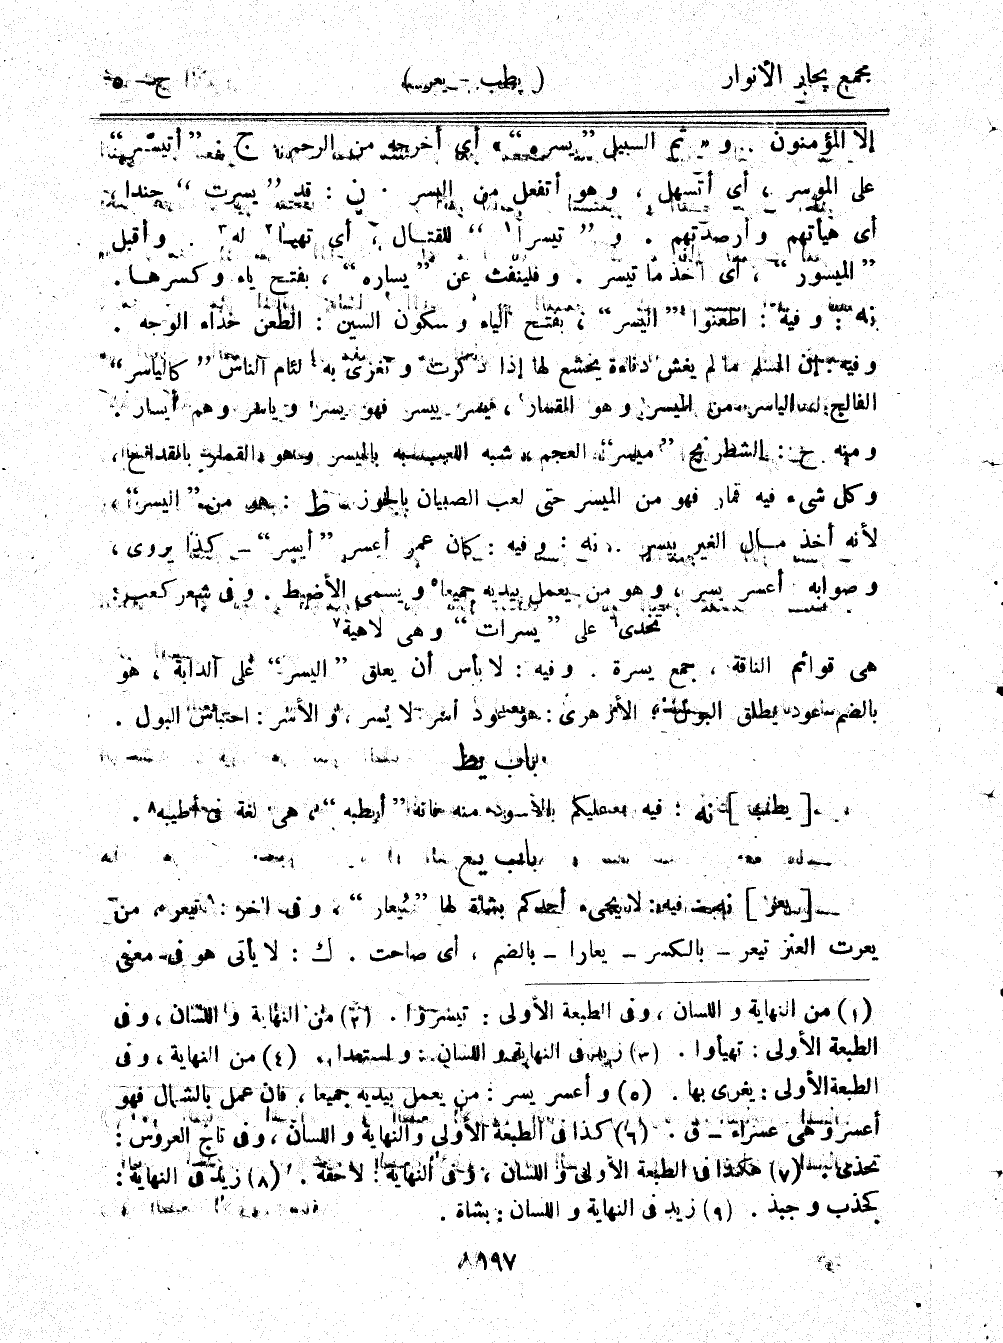 مجمع بحار الأنوار ( يطب - يعر ) ج - ٥
إلا المؤمنون . و « ثم السبيل "يسره" » أي أخرجه من الرحم . ج فقد "أتيسر"
على الموسر ، أى أتسهل ، و هو أتفعل من اليسر . ن : قد "يسرت" جندا ،
أى هيأتهم و أرصدتهم . و "تيسرا١" للقتال ، أى تهيئا٢ له٣ . و أقبل
"الميسور" ، أى أخذ ما تيسر . و فلينفث عن "يساره" ، بفتح ياء و كسرها .
نه : و فيه : اطعنوا "اليسر" ، بفتح الياء و سكون السين : الطعن حذاء الوجه .
و فيه : إن المسلم ما لم يغش دناءة يخشع لها إذا ذكرت و تغرى به٤ لئام الناس "كالياسر"
الفالج الياسر من الميسر و هو القمار ، يسر ييسر فهو يسر و ياسر و هم أيسار .
و منه ح : الشطرنج "ميسر" العجم ، شبه اللعب به بالميسر و هو القمار بالقداح ،
و كل شىء فيه قمار فهو من الميسر حتى لعب الصبيان بالجوز . ط : هو من "اليسر" ،
لأنه أخذ مال الغير بيسر . نه : و فيه : كان عمر أعسر "أيسر" - كذا يروى ،
و صوابه أعسر يسر ، و هو من يعمل بيديه جميعا٥ و يسمى الأضبط . و فى شعر كعب :
تخدى٦ على "يسرات" و هى لاهية٧
هى قوائم الناقة ، جمع يسرة . و فيه : لا بأس أن يعلق "اليسر" على الدابة ، هو
بالضم عود يطلق البول ، الأزهرى : هو عود أسر لا يسر ، و الأسر : احتباس البول .
باب يط
[ يطب ] نه : فيه عليكم بالأسود منه فانه "أيطبه" ، هى لغة فى أطيبه٨ .
باب يع
[ يعر ] نه فيه : لا يجىء أحدكم بشاة لها "يعار" ، و فى آخر : تيعر ، من
يعرت العنز تيعر - بالكسر - يعارا - بالضم ، أى صاحت . ك : لا يأتى هو فى معنى
(١) من النهاية و اللسان ، و فى الطبعة الأولى : تيسروا . (٢) من النهاية و اللسان ، و فى
الطبعة الأولى : تهيأوا . (٣) زيد فى النهاية و اللسان : و استعدا . (٤) من النهاية ، و فى
الطبعة الأولى : يغرى بها . (٥) و أعسر يسر : من يعمل بيديه جميعا ، فان عمل بالشمال فهو
أعسر و هى عسراء - ق . (٦) كذا فى الطبعة الأولى و النهاية و اللسان ، و فى تاج العروس :
تحذى (٧) هكذا فى الطبعة الأولى و اللسان ، و فى النهاية : لاحقة . (٨) زيد فى النهاية :
كجذب و جبذ . (٩) زيد فى النهاية و اللسان : بشاة .